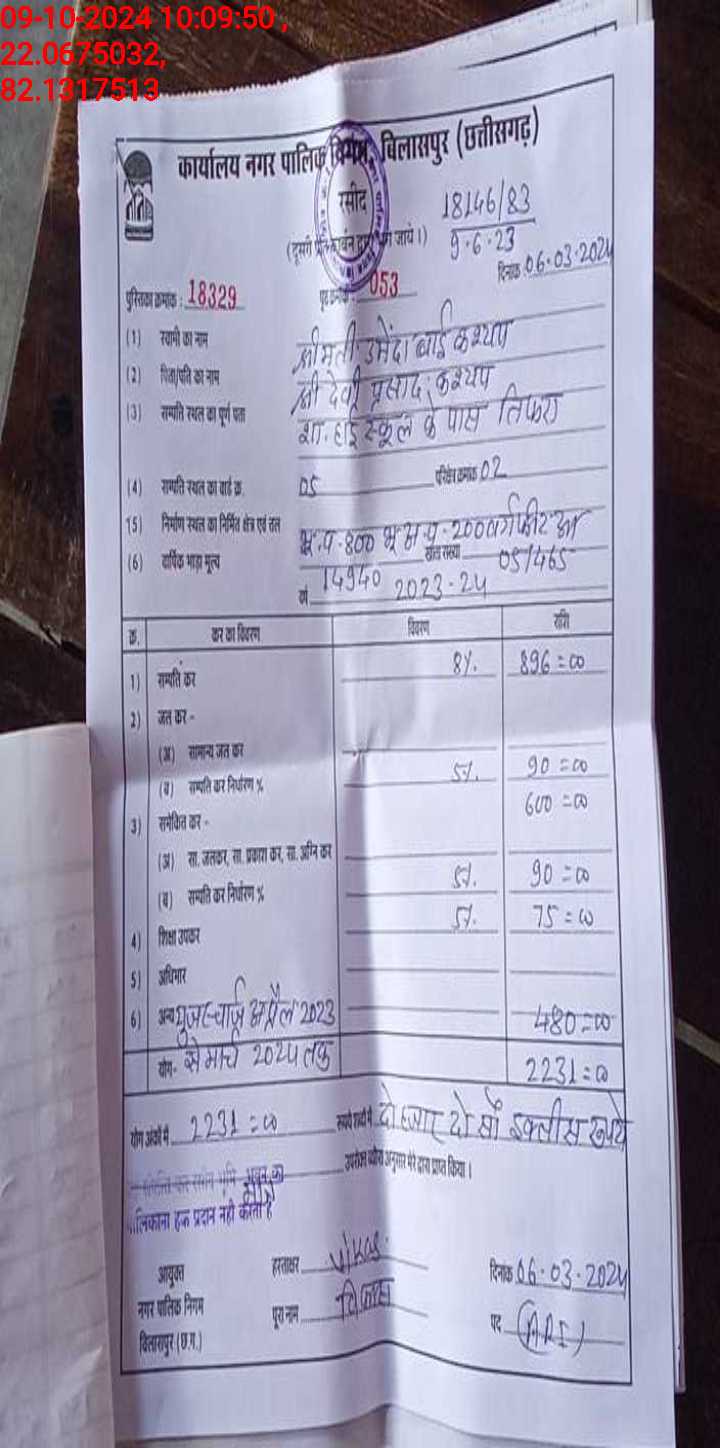 09-10-2024 10:09:50 ,
22.0675032,
82.1317513
कार्यालय नगर पालिक निगम, बिलासपुर (छत्तीसगढ़)
रसीद
18146/83
9.6.23
दिनांक 06.03.2024
पुस्तिका क्रमांक : 18329 053
(1) स्वामी का नाम श्रीमती उमेंदा बाई कश्यप
(2) पिता/पति का नाम श्री देवी प्रसाद कश्यप
(3) सम्पति स्थल का पूर्ण पता शा. हाई स्कूल के पास तिफरा
(4) सम्पति स्थल का वार्ड क्र. 05 परिक्षेत्र क्रमांक 02
15) निर्माण स्थल का निर्मित क्षेत्र एवं तल भू.प.800 भू.म.प.200 वर्गफीट
(6) वार्षिक भाड़ा मूल्य 14940 खाता संख्या 05/465
वर्ष 2023-24
क्र. कर का विवरण विवरण राशि
1) सम्पति कर 8%. 896=00
2) जल कर -
(अ) सामान्य जल कर
(ब) सम्पति कर निर्धारण % 5%. 90=00
3) समेकित कर - 600=00
(अ) सा. जलकर, सा. प्रकाश कर, सा. अग्नि कर
(ब) सम्पति कर निर्धारण % 5%. 90=00
4) शिक्षा उपकर 5%. 75=00
5) अधिभार
6) अन्य युजर चार्ज अप्रैल 2023 480=00
योग- से मार्च 2024 तक 2231=00
योग अंकों में 2231=00 रूपये शब्दों में दो हजार दो सौ इक्तीस रूपये
उपरोक्त ब्यौरा अनुसार मेरे द्वारा प्राप्त किया ।
भूमि भवन का
मालिकाना हक प्रदान नही करती है
आयुक्त हस्ताक्षर Vikas दिनांक 06.03.2024
नगर पालिक निगम पूरा नाम विकास पद (ARI)
बिलासपुर (छ.ग.)